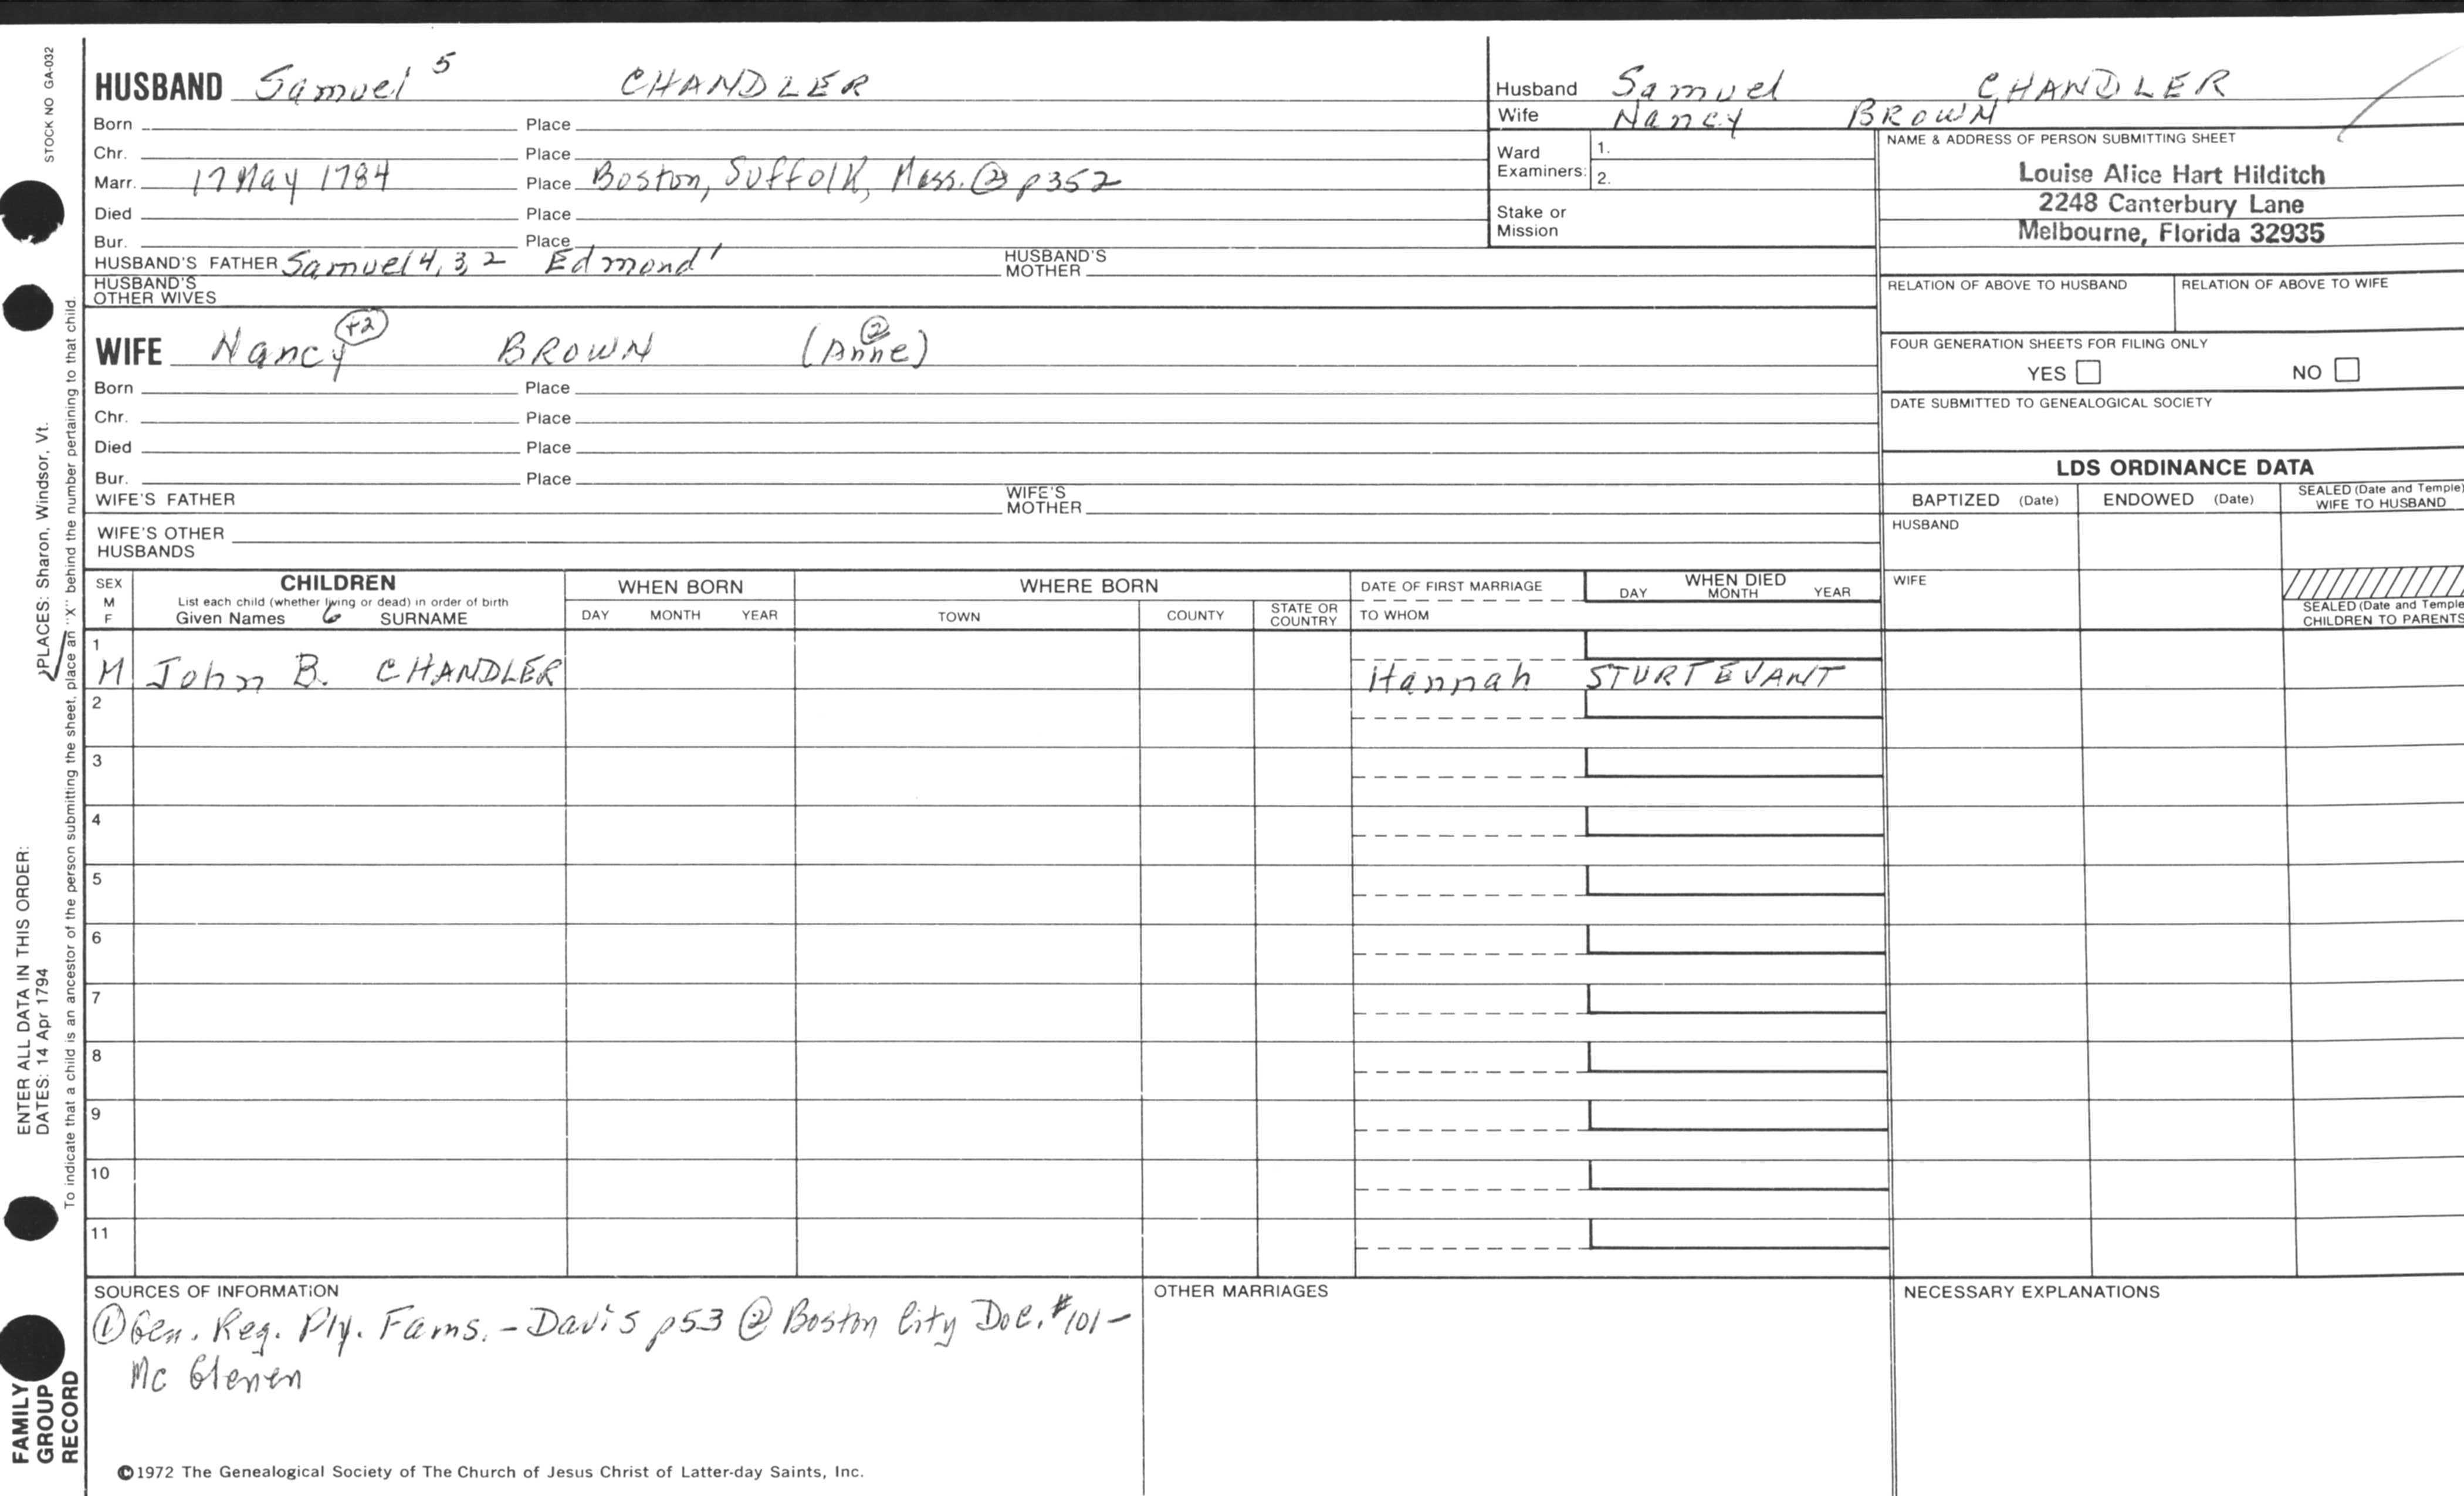 STOCK NO GA-032
HUSBAND Samuel 5 CHANDLER
Born Place
Chr. Place
Marr. 17 May 1784 Place Boston, Suffolk, Mass. ② p352
Died Place
Bur. Place
HUSBAND'S FATHER Samuel 4, 3, 2 Edmond 1 HUSBAND'S MOTHER
HUSBAND'S OTHER WIVES
Husband Samuel CHANDLER
Wife Nancy BROWN
Ward Examiners: 1.
2.
Stake or Mission
NAME & ADDRESS OF PERSON SUBMITTING SHEET
Louise Alice Hart Hilditch
2248 Canterbury Lane
Melbourne, Florida 32935
RELATION OF ABOVE TO HUSBAND RELATION OF ABOVE TO WIFE
FOUR GENERATION SHEETS FOR FILING ONLY
YES NO
DATE SUBMITTED TO GENEALOGICAL SOCIETY
WIFE Nancy +2 BROWN (Anne) ②
Born Place
Chr. Place
Died Place
Bur. Place
WIFE'S FATHER WIFE'S MOTHER
WIFE'S OTHER HUSBANDS
LDS ORDINANCE DATA
BAPTIZED (Date) ENDOWED (Date) SEALED (Date and Temple) WIFE TO HUSBAND
HUSBAND
WIFE
SEALED (Date and Temple) CHILDREN TO PARENTS
SEX M F
CHILDREN
List each child (whether living or dead) in order of birth
Given Names 6 SURNAME
WHEN BORN
DAY MONTH YEAR
WHERE BORN
TOWN COUNTY STATE OR COUNTRY
DATE OF FIRST MARRIAGE
TO WHOM
WHEN DIED
DAY MONTH YEAR
1
M John B. CHANDLER Hannah STURTEVANT
2
3
4
5
6
7
8
9
10
11
SOURCES OF INFORMATION
① Gen. Reg. Ply. Fams. - Davis p53 ② Boston City Doc. #101 -
Mc Glenen
OTHER MARRIAGES
NECESSARY EXPLANATIONS
©1972 The Genealogical Society of The Church of Jesus Christ of Latter-day Saints, Inc.
ENTER ALL DATA IN THIS ORDER:
DATES: 14 Apr 1794
PLACES: Sharon, Windsor, Vt.
To indicate that a child is an ancestor of the person submitting the sheet, place an "X" behind the number pertaining to that child.
FAMILY
GROUP
RECORD